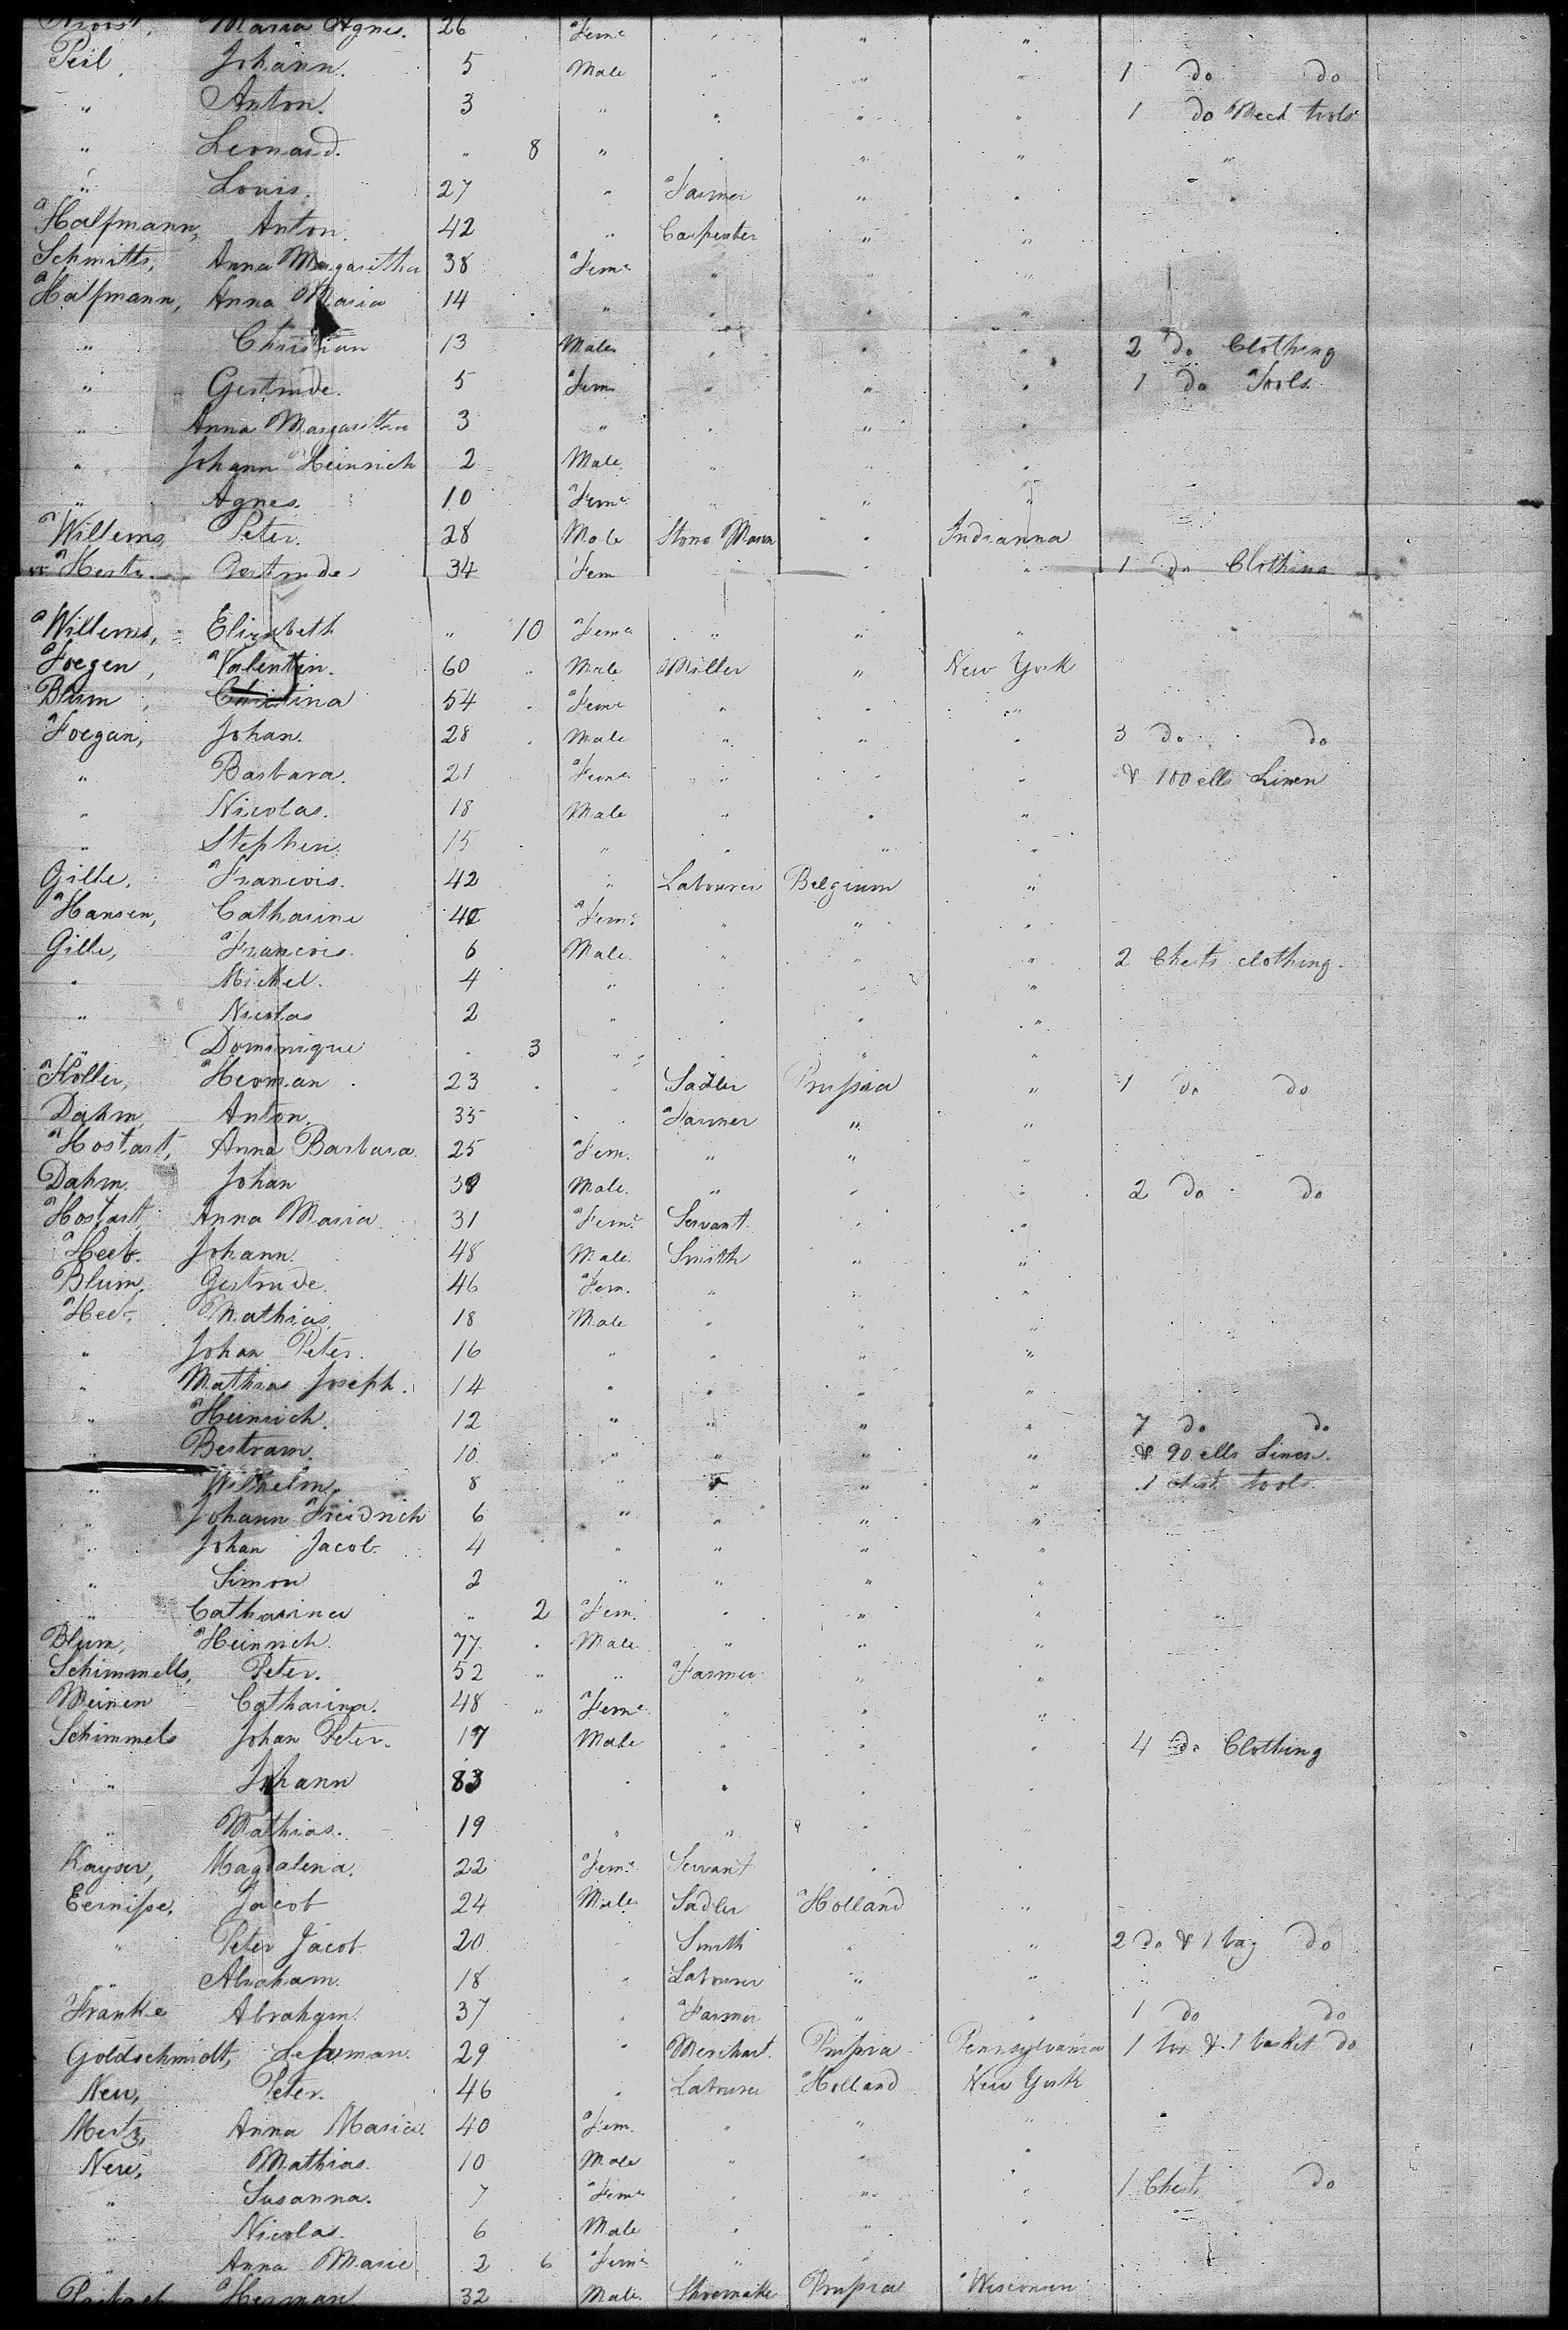 Maria Agnes. 26 Feme " " "
Peil, Johann. 5 Male " " " 1 do do
" Anton. 3 " " " " 1 do Mech tools
" Leonard. " 8 " " " " "
" Louis. 27 " Farmer " " "
Halfmann, Anton. 42 " Carpenter " "
Schmitts, Anna Margaritha 38 Feme " " "
Halfmann, Anna Maria 14 " " " "
" Christian 13 Male " " " 2 do Clothing
" Gertrude. 5 Fem " " " 1 do Tools.
" Anna Margaritha 3 " " " "
" Johann Heinrich 2 Male " " "
" Agnes. 10 Feme " " "
Willems Peter. 28 Male Stone Mason " Indianna
Gertrude 34 Fem " " 1 do Clothing
Willems, Elizabeth " 10 Feme " " "
Foegen, Valentin. 60 " Male Miller " New York
Blum, Christina 54 Feme " " "
Foegan, Johan. 28 Male " " " 3 do do
" Barbara. 21 Feme " " " & 100 ells Linen
" Nicolas. 18 Male " " "
" Stephen. 15 " " " "
Gille, Francois. 42 " Labourer Belgium "
Hansen, Catharine 40 Feme " " "
Gille, Francois. 6 Male. " " " 2 Chests clothing.
" Michel. 4 " " " "
" Nicolas 2 " " " "
" Dominique " 3 " " " "
Koller, Herman. 23 " Sadler Prussia " 1 do do
Dahm, Anton. 35 " Farmer " "
Hostart, Anna Barbara 25 Fem. " " "
Dahm. Johan 38 Male. " " " 2 do do
Hostart Anna Maria 31 Feme Servant " "
Johann. 48 Male Smith " "
Blum. Gertrude. 46 Fem. " " "
Mathias 18 Male " " "
" Johan Peter. 16 " " " "
" Mathias Joseph. 14 " " " "
" Heinrich. 12 " " " " 7 do do
" Bertram. 10 " " " " & 90 ells Linen.
" Wilhelm. 8 " " " " 1 chest tools
" Johann Freidrich 6 " " " "
" Johan Jacob 4 " " " "
" Simon 2 " " " "
" Catharina " 2 Fem. " " "
Blum, Heinrich. 77 Male " " "
Schimmells, Peter. 52 " " Farmer " "
Meinen Catharina. 48 " Feme " " "
Schimmels Johan Peter. 17 Male " " " 4 do Clothing
" Johann 83 " " " "
" Mathias. 19 " " " "
Kayser, Magdalena. 22 Feme Servant " "
Eernisse, Jacob 24 Male Sadler Holland "
" Peter Jacob 20 Smith " " 2 do & 1 bag do
" Abraham. 18 " Labourer " "
Franke Abraham. 37 " Farmer " " 1 do do
Goldschmidt, 29 " Merchant. Prussia Pennsylvania 1 box & 1 basket do
Neu, Peter. 46 " Labourer Holland New York
Mertz, Anna Maria. 40 Fem. " " "
Neu, Mathias. 10 Male " " "
" Susanna. 7 Feme " " " 1 Chest do
" Nicolas. 6 Male " " "
" Anna Marie 2 6 Feme " " "
Herman 32 Male. Shoemaker Prussia Wisconsin